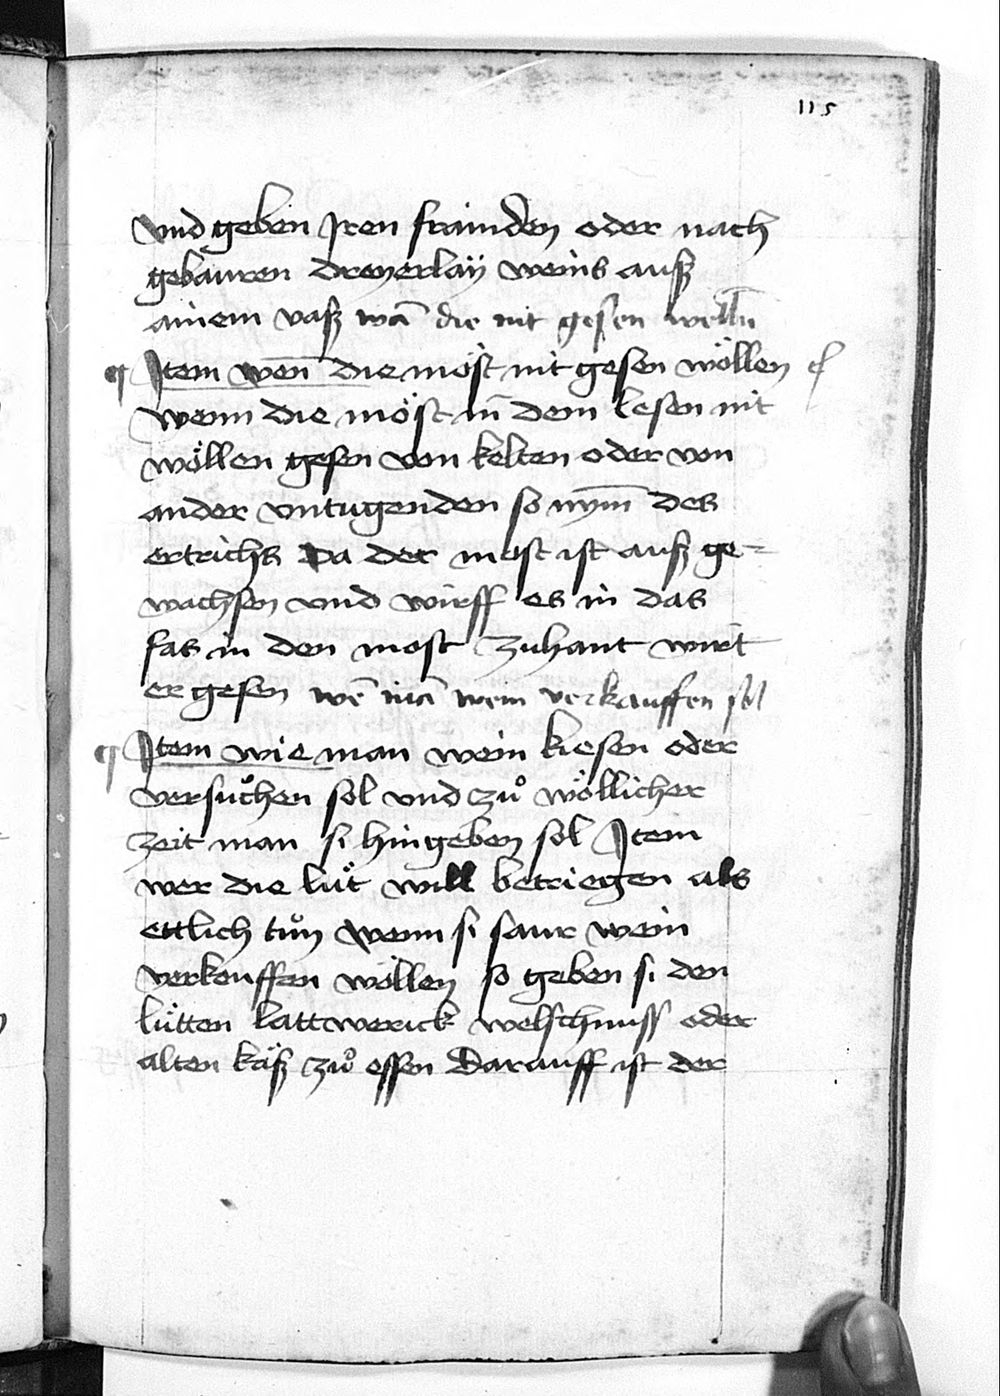 115
vnd geben Jren frainden oder nach
gebauren dreyerlaÿ weins auß
ainem vaß wā die nit gesen wellñ
Jtem wen̄ die möst nit gesen wöllen
wenn die möst in dem lesen nit
wöllen gesen von kelten oder von
ander vntugenden so nym̄ des
ertrichs Da der most ist auß ge=
wachsen vnd wirff es in das
fas in den most zuhant wirt
er gesen wē mā wein verkauffen sol
Jtem wie man wein kiesen oder
versůchen sol vnd zů wöllicher
zeit man si hingeben sol Jtem
wer die lüt will betriegen als
ettlich tůn wenn si saur wein
verkauffen wöllen so geben si den
lütten lattwerick welschnuss oder
alten käß zů essen Darauff ist der